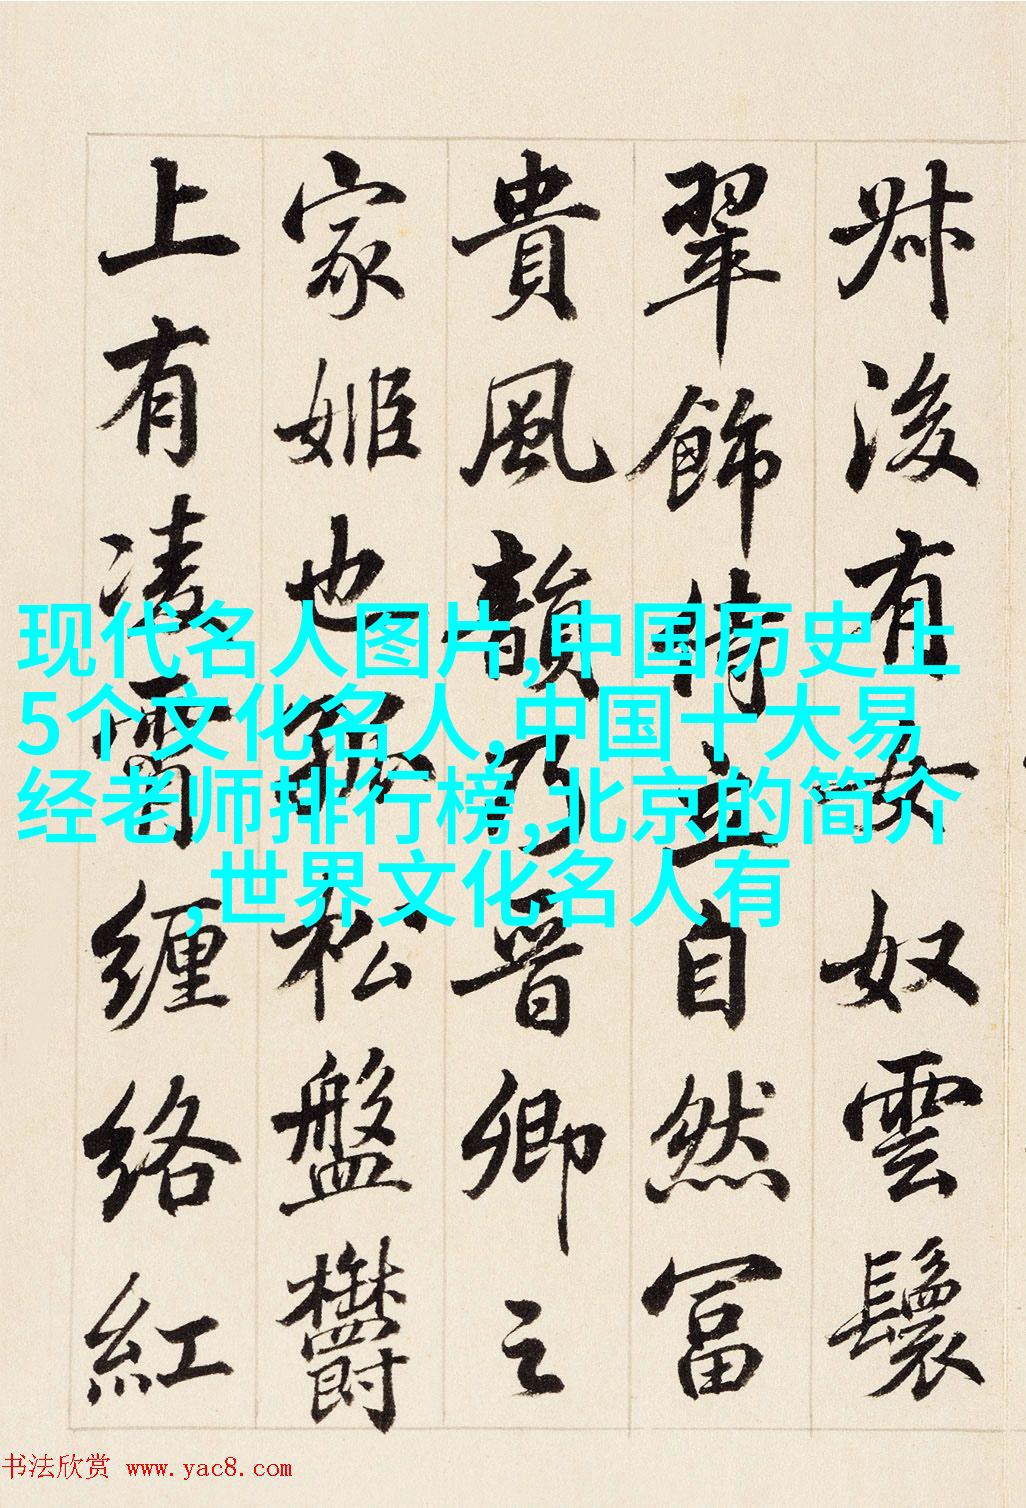 叔後有女奴雲鬟
翠飾侍立自然冨
貴風韻乃晉卿之
家姬也孤松盤欝
上有凌霄纏絡紅
现代名人图片,中国历史上
5个文化名人,中国十大易
经老师排行榜,北京的简介
,世界文化名人有
书法欣赏 www.yac8.com